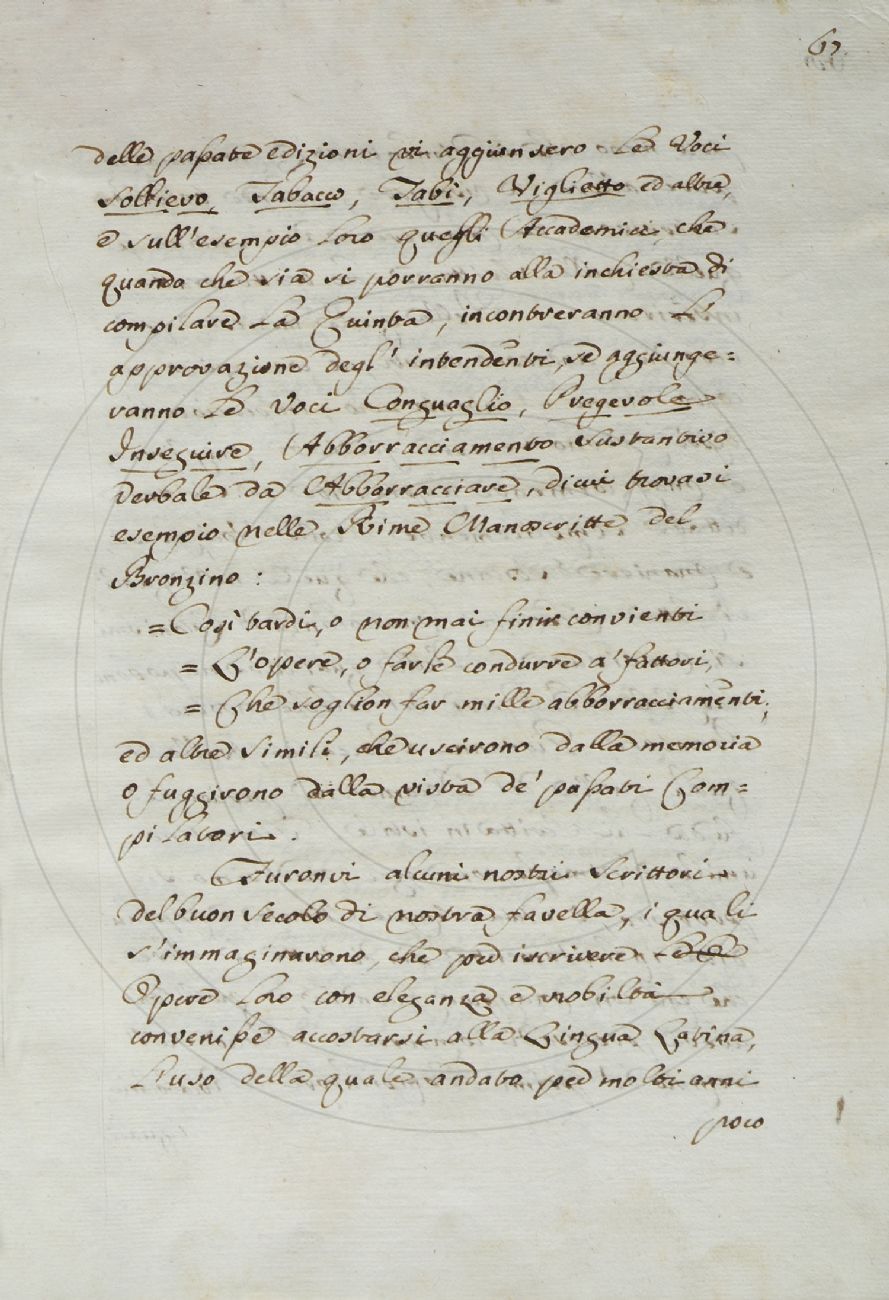 67
delle passate edizioni vi aggiunsero le Voci
Sollievo, Tabacco, Tabì, Viglietto ed altre,
e sull'esempio loro quegli Accademici, che
quando che sia si porranno alla inchiesta di
compilare la Quinta, incontreranno l'
approvazione degl' intendenti, se aggiunge=
ranno le Voci Conguaglio, Pregevole
Inseguire, Abborracciamento sustantivo
verbale da Abborracciare, di cui trovasi
esempio nelle Rime Manoscritte del
Bronzino:
=Così tardi, o non mai finir convienti
= L'opere, o farle condurre a' fattori,
= Che soglion far mille abborracciamenti;
ed altre simili, che uscirono dalla memoria
o fuggirono dalla vista de' passati Com=
pilatori.
Furonvi alcuni nostri Scrittori
del buon secolo di nostra favella, i quali
s'immaginarono, che per iscrivere le
Opere loro con eleganza e nobiltà
convenisse accostarsi alla Lingua Latina,
l'uso della quale andato per molti anni
poco